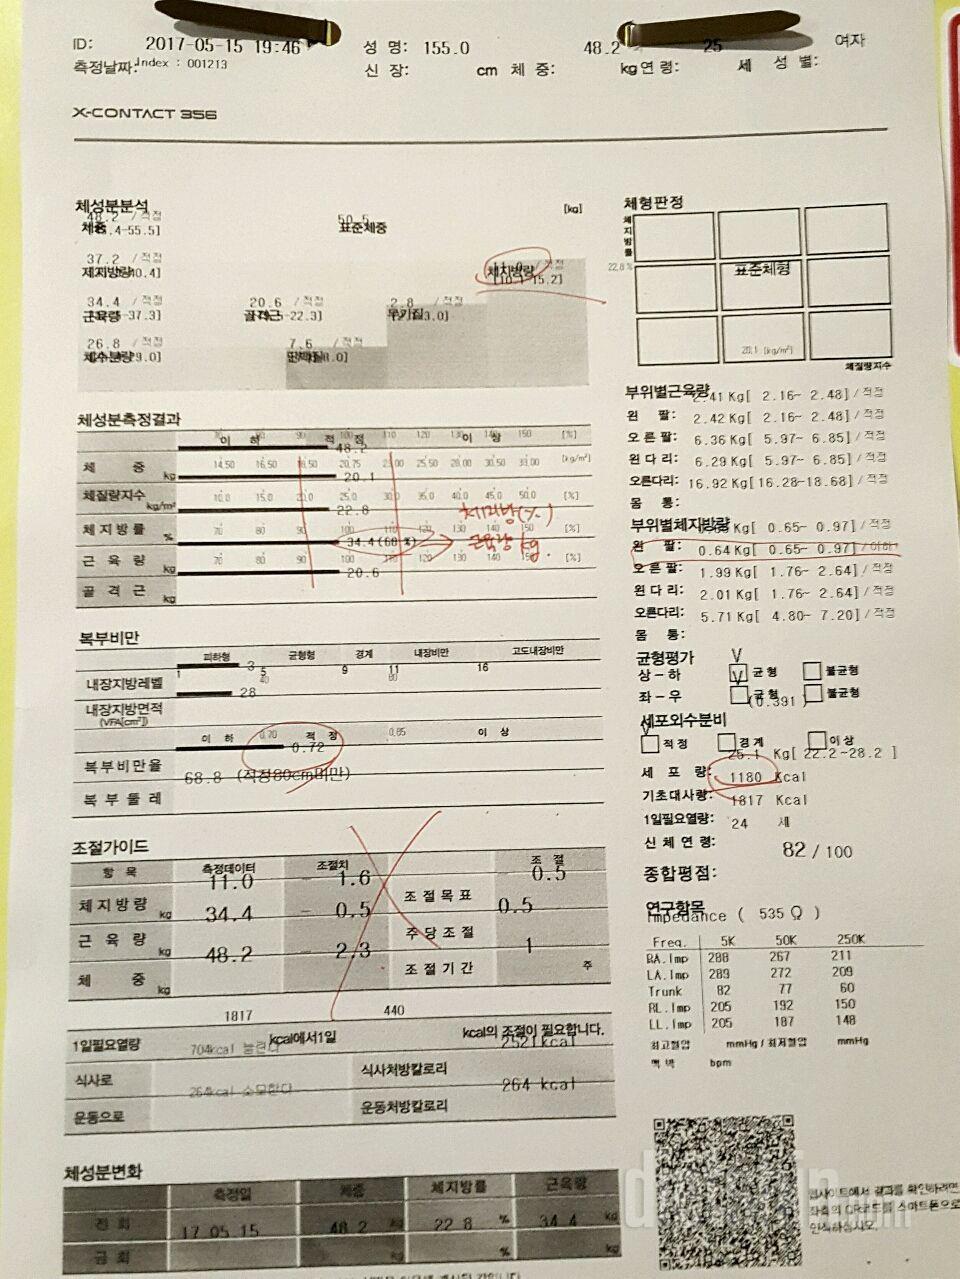 ID: 2017-05-15 19:46 성 명: 155.0 48.2 25 여자
측정날짜: Index : 001213 신 장: cm 체 중: kg 연 령: 세 성 별:
X-CONTACT 356
체성분분석 [kg]
48.2 / 적정 50.5
체중 표준체중
37.2 / 적정 11.0 / 적정
제지방량 체지방량
34.4 / 적정 20.6 / 적정 2.8 / 적정
근육량 골격근 무기질
26.8 / 적정 7.6 / 적정
체수분량 단백질
체형판정
체지방률
22.8 % 표준체형
20.1 [kg/m²]
체질량지수
체성분측정결과
이 하 적 정 이 상
체 중 kg 48.2
14.50 16.50 18.50 20.75 23.00 25.50 28.00 30.50 33.00 [kg/m²]
체질량지수 kg/m² 20.1
10.0 15.0 20.0 25.0 30.0 35.0 40.0 45.0 50.0 [%]
체지방률 % 22.8
체지방(%)
70 80 90 100 110 120 130 140 150 [%]
근 육 량 kg 34.4(68 %)
근육량 kg.
70 80 90 100 110 120 130 140 150 [%]
골 격 근 kg 20.6
부위별근육량 2.41 Kg[ 2.16~ 2.48] / 적정
왼 팔: 2.42 Kg[ 2.16~ 2.48] / 적정
오른팔: 6.36 Kg[ 5.97~ 6.85] / 적정
왼다리: 6.29 Kg[ 5.97~ 6.85] / 적정
오른다리: 16.92 Kg[16.28~18.68] / 적정
몸 통:
부위별체지방량 Kg[ 0.65~ 0.97] / 적정
왼 팔: 0.64 Kg[ 0.65~ 0.97] / 이하
오른팔: 1.99 Kg[ 1.76~ 2.64] / 적정
왼다리: 2.01 Kg[ 1.76~ 2.64] / 적정
오른다리: 5.71 Kg[ 4.80~ 7.20] / 적정
몸 통:
균형평가
상-하 V 균형 불균형
좌-우 V 균형 불균형
(0.391 )
세포외수분비
V 적정 경계 이상
25.1 Kg[ 22.2~28.2 ]
세 포 량: 1180 Kcal
기초대사량: 1817 Kcal
1일필요열량: 24 세
신체연령: 82 / 100
종합평점:
복부비만
피하형 균형형 경계 내장비만 고도내장비만
내장지방레벨 3
1 5 9 11 16
내장지방면적 (VFA[cm²]) 28
이 하 0.70 적 정 0.85 이 상
복부비만율 0.72
복부둘레 68.8 (적정80cm미만)
조절가이드
항 목 측정데이터 조절치 조 절
체지방량 kg 11.0 - 1.6 조절목표 - 0.5
근 육 량 kg 34.4 - 0.5 주당조절 0.5
체 중 kg 48.2 - 2.3 조절기간 1 주
1817 440
1일필요열량 kcal에서1일 kcal의 조절이 필요합니다.
식사로 704kcal 늘린다 식사처방칼로리 2521kcal
운동으로 264kcal 소모한다 운동처방칼로리 264 kcal
연구항목
Impedance ( 535 Ω )
Freq. 5K 50K 250K
RA.Imp 288 267 211
LA.Imp 289 272 209
Trunk 82 77 60
RL.Imp 205 192 150
LL.Imp 205 187 148
최고혈압 mmHg / 최저혈압 mmHg
맥 박 bpm
체성분변화
측정일 체중 체지방률 근육량
전 회 17.05.15 48.2 Kg 22.8 % 34.4 kg
금 회 kg % kg
웹사이트에서 결과를 확인하려면
좌측의 QR코드를 스마트폰으로
인식하십시오.